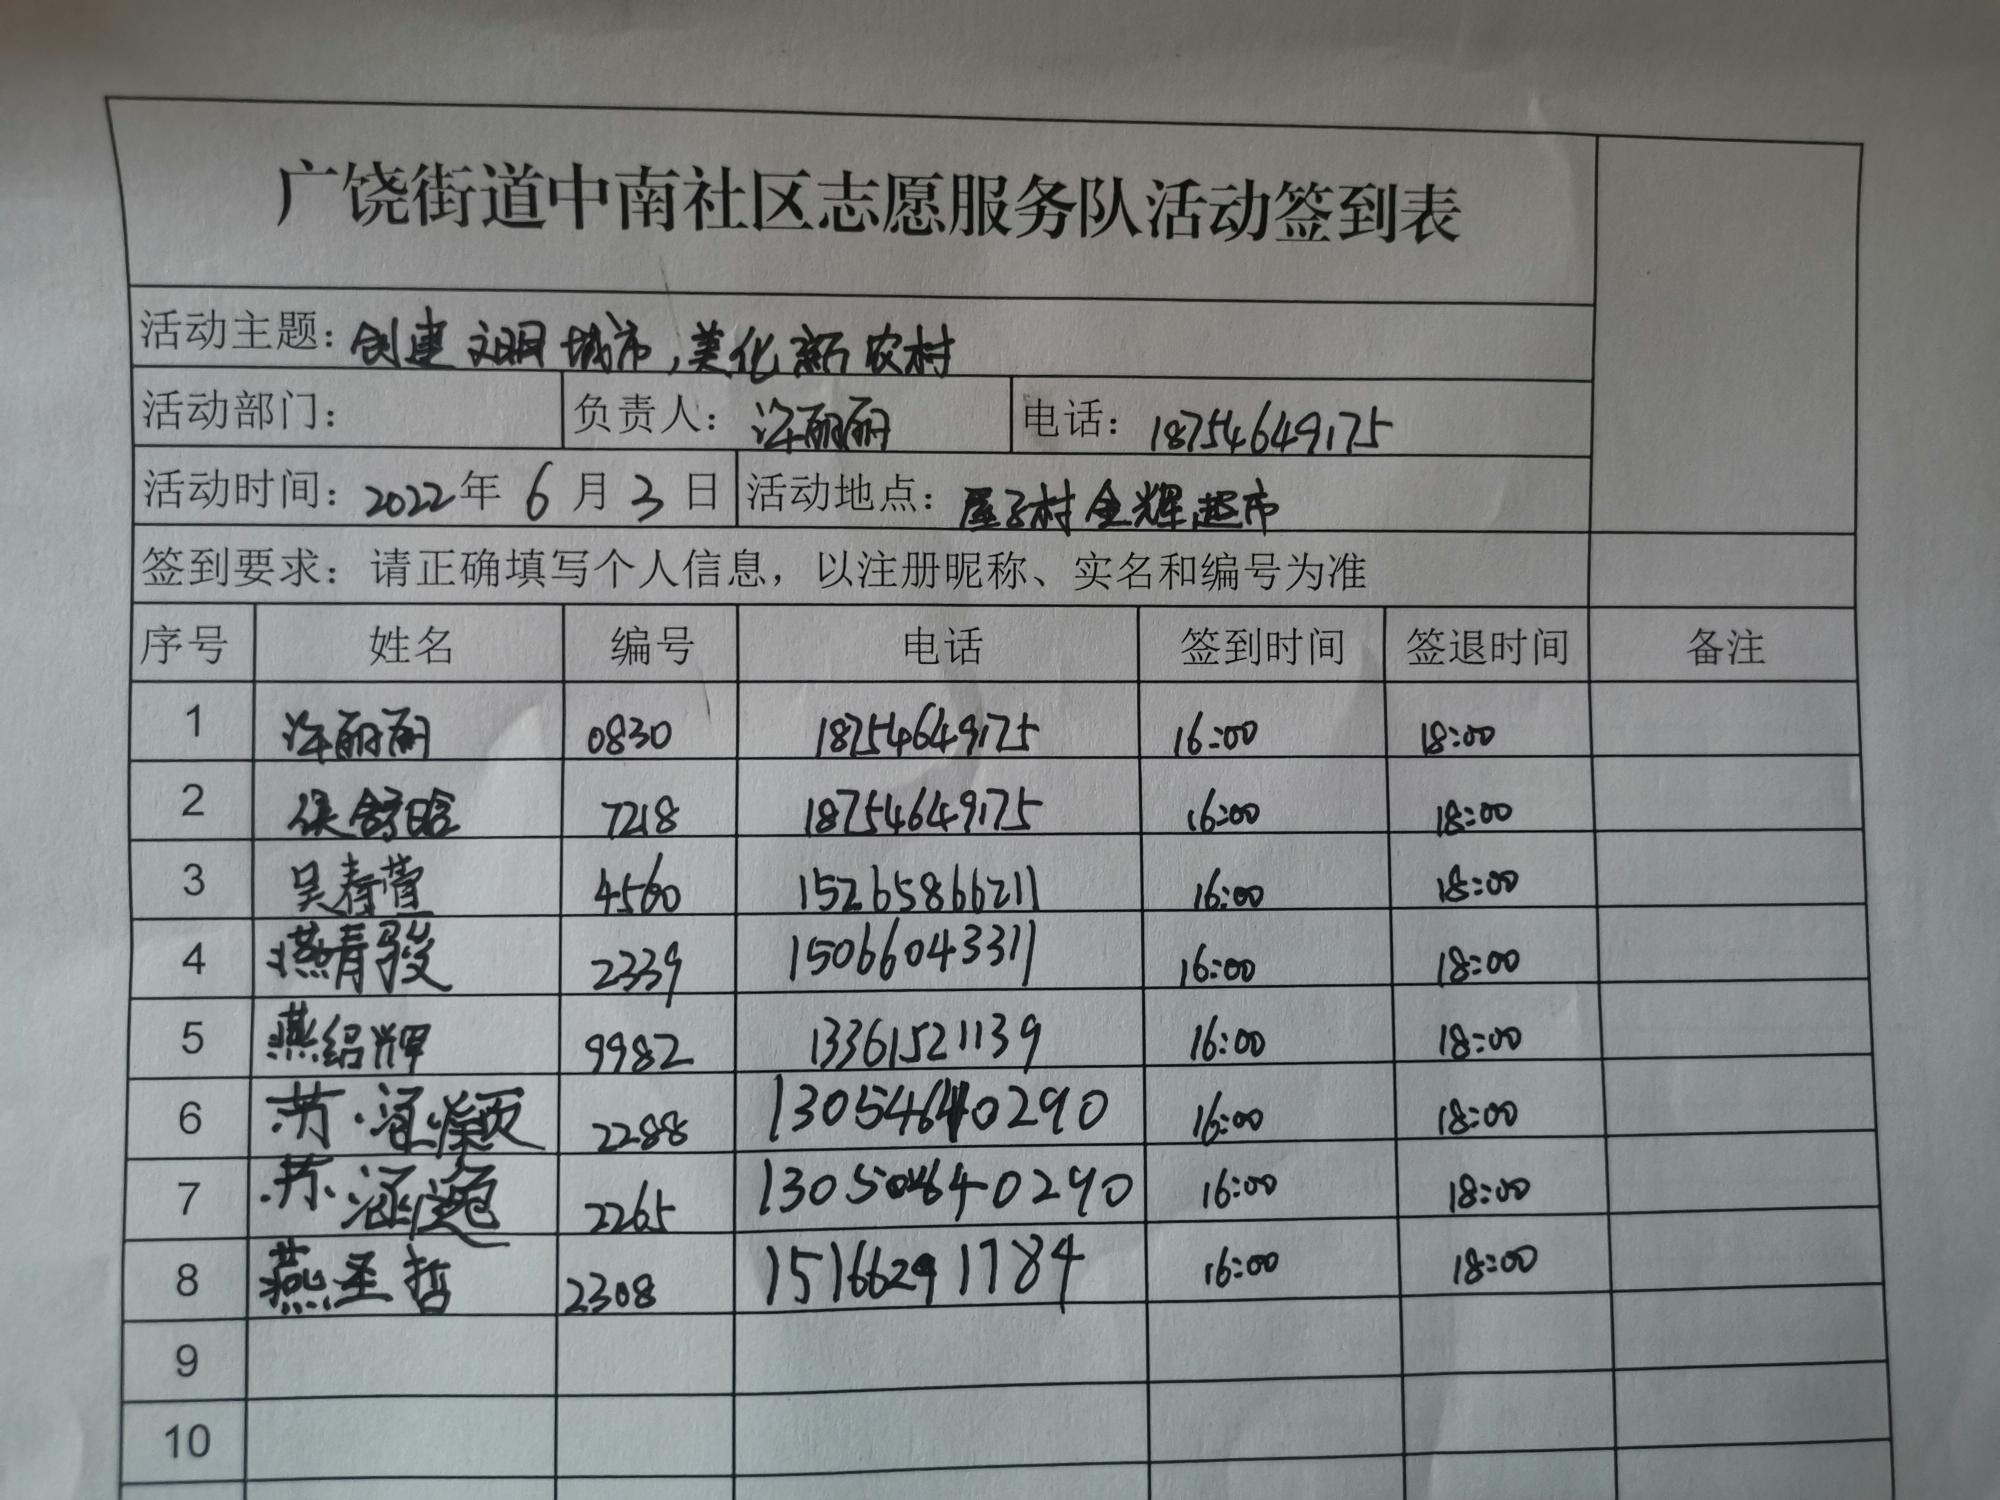 广饶街道中南社区志愿服务队活动签到表
活动主题：创建文明城市，美化新农村
活动部门： 负责人：许丽丽 电话：18754649175
活动时间：2022年6月3日 活动地点：屋子村金辉超市
签到要求：请正确填写个人信息，以注册昵称、实名和编号为准
序号 姓名 编号 电话 签到时间 签退时间 备注
1 许丽丽 0830 18754649175 16:00 18:00
2 侯舒晗 7218 18754649175 16:00 18:00
3 吴春萱 4560 15265866211 16:00 18:00
4 燕青骏 2339 15066043311 16:00 18:00
5 燕绍辉 9982 13361521139 16:00 18:00
6 苏涵颖 2288 13054640290 16:00 18:00
7 苏涵逸 2265 13054640290 16:00 18:00
8 燕圣哲 2308 15166291784 16:00 18:00
9
10